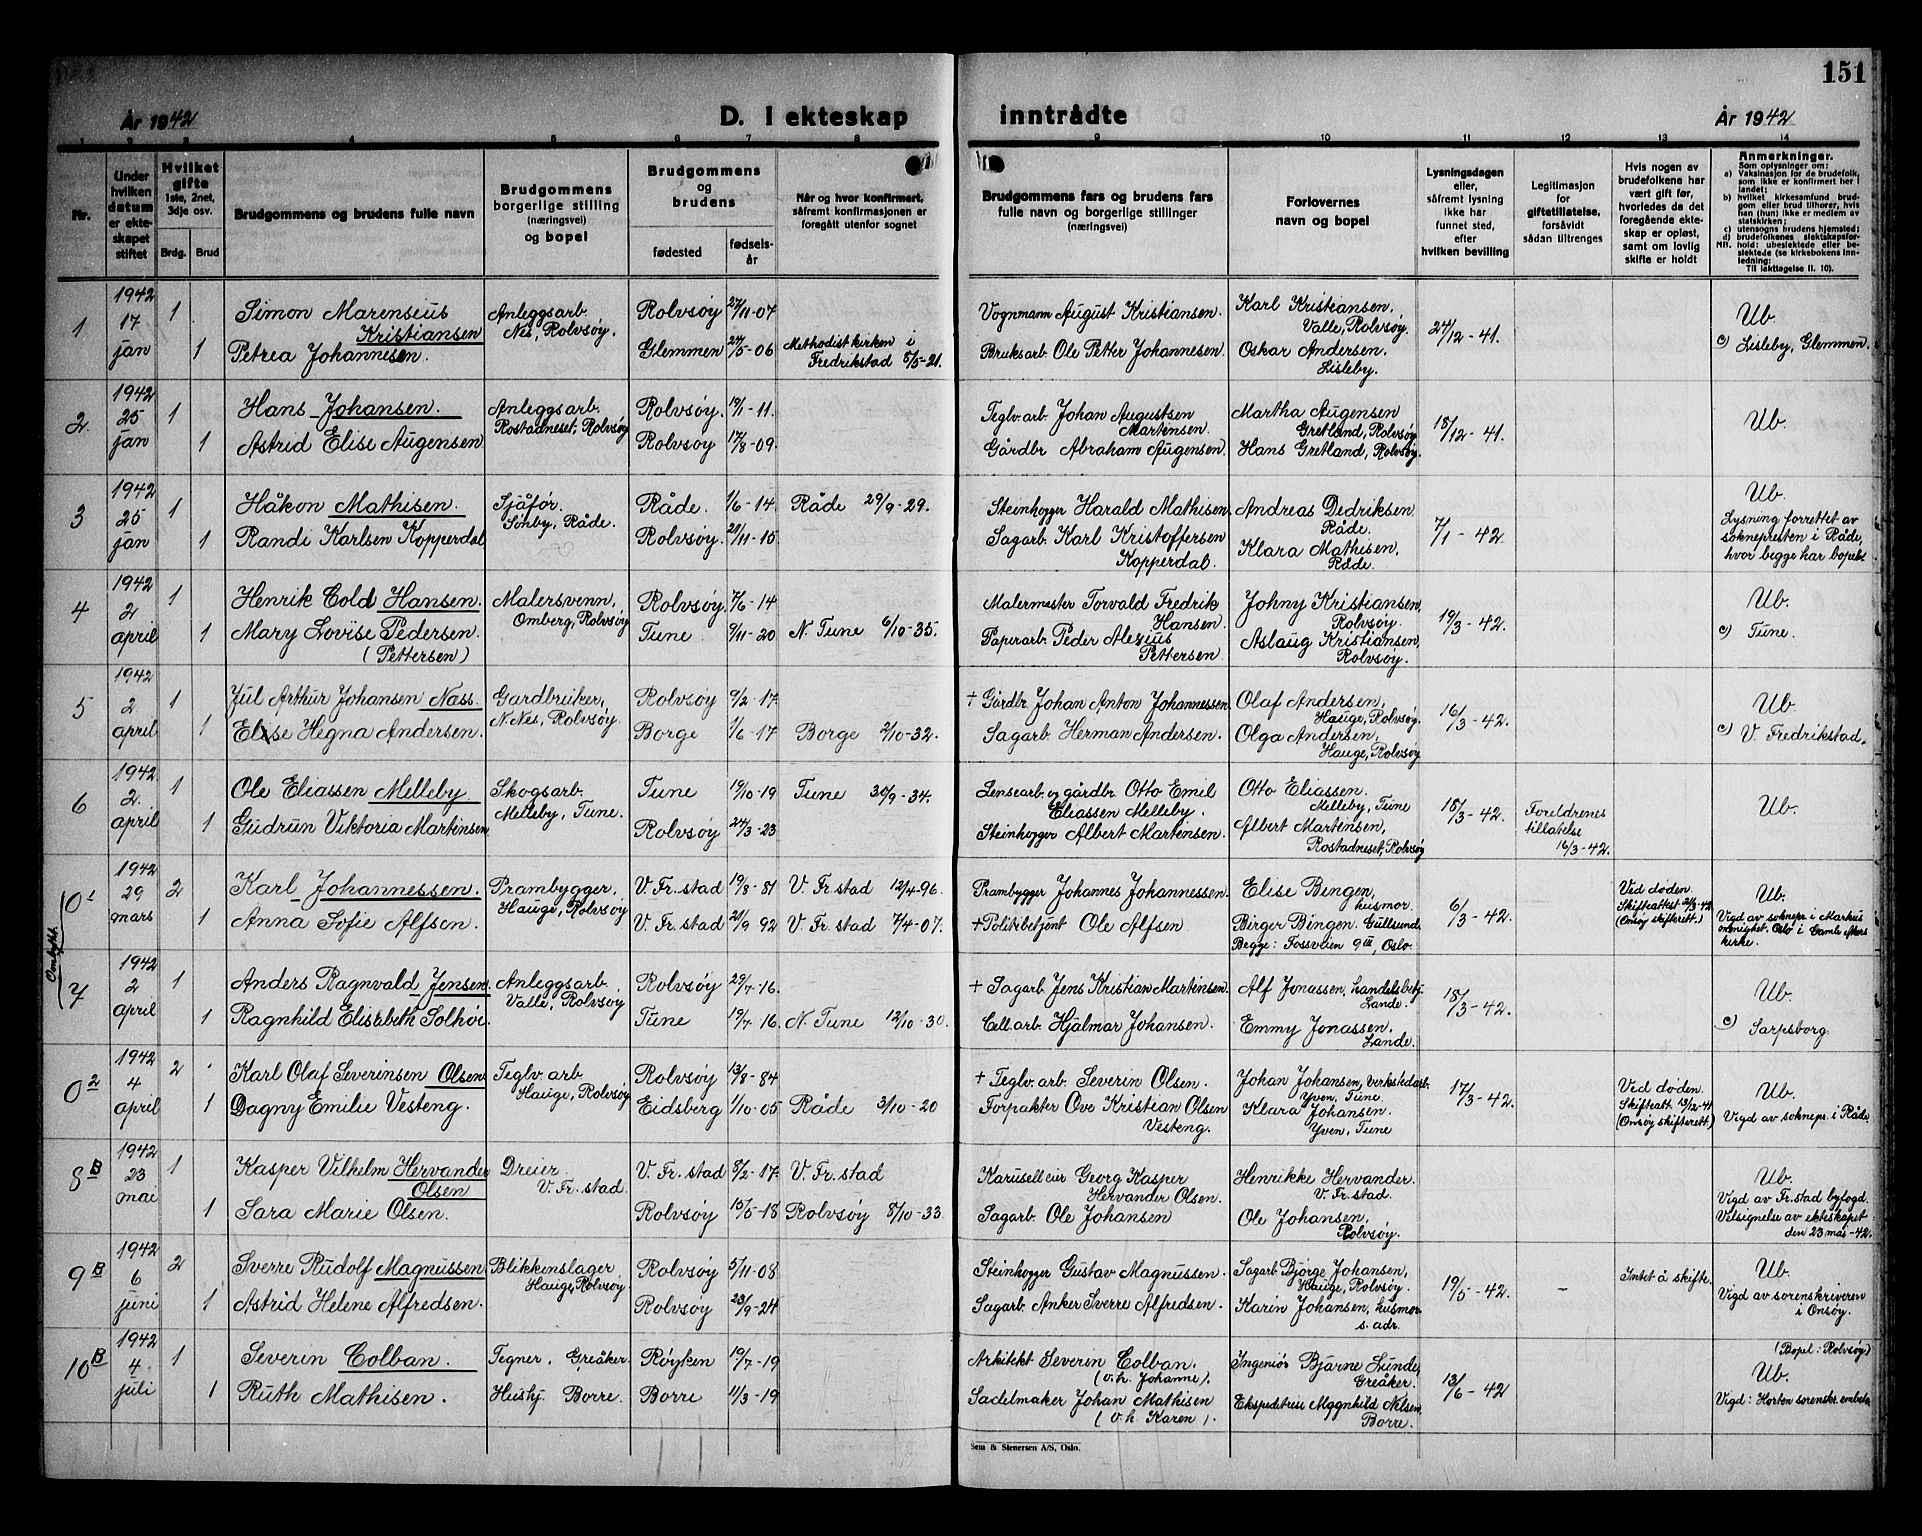 151
År 1942
D. I ekteskap inntrådte
År 1942
1 2 3 4 5 6 7 8 9 10 11 12 13 14
Nr.
Under hvilken datum er ekteskapet stiftet
Hvilket gifte 1ste, 2net, 3dje osv.
Brdg. Brud
Brudgommens og brudens fulle navn
Brudgommens borgerlige stilling (næringsvei) og bopel
Brudgommens og brudens
fødested
fødselsår
Når og hvor konfirmert, såfremt konfirmasjonen er foregått utenfor sognet
Brudgommens fars og brudens fars fulle navn og borgerlige stillinger (næringsvei)
Forlovernes navn og bopel
Lysningsdagen eller, såfremt lysning ikke har funnet sted, efter hvilken bevilling
Legitimasjon for giftetillatelse, forsåvidt sådan tiltrenges
Hvis nogen av brudefolkene har vært gift før, hvorledes da det foregående ekteskap er opløst, samt om lovlig skifte er holdt
Anmerkninger.
Som oplysninger om:
a) Vaksinasjon for de brudefolk, som ikke er konfirmert her i landet;
b) hvilket kirkesamfund brudgom eller brud tilhører, hvis han (hun) ikke er medlem av statskirken;
c) utensogns brudens hjemsted;
d) brudefolkenes slektskapsforhold: ubeslektede eller beslektede (se kirkebokens innledning:
NB. Til iakttagelse II. 10).
1 1942 17 jan 1 Simon Marensius Kristiansen Anleggsarb. Nes, Rolvsøy. Rolvsøy 27/11-07 Vognmann August Kristiansen. Karl Kristiansen, Valle, Rolvsøy. 24/12-41. Ub.
1 Petrea Johannesen. Glemmen 24/5-06 Methodistkirken i Fredrikstad 5/5-21. Bruksarb. Ole Petter Johannesen. Oskar Andersen. Lisleby. c) Lisleby, Glemmen.
2. 1942 25 jan 1 Hans Johansen. Anleggsarb. Rostadneset, Rolvsøy Rolvsøy 19/1-11. Teglv. arb. Johan Augustsen Martensen. Martha Augensen Gretland, Rolvsøy 18/12-41. Ub.
1 Astrid Elise Augensen Rolvsøy 17/8-09. Gårdbr Abraham Augensen. Hans Gretland, Rolvsøy.
3 1942 25 jan 1 Håkon Mathisen. Sjåfør. Sonby, Råde. Råde. 1/6-14 Råde 29/9-29. Steinhogger Harald Mathisen. Andreas Dedriksen Råde. 7/1-42 Ub.
1 Randi Karlsen Kopperdal Rolvsøy. 20/11-15 Sagarb. Karl Kristoffersen Kopperdal. Klara Mathisen, Råde. Lysning forrettet av sokneprесten i Råde, hvor begge har bopel.
4 1942 2 april 1 Henrik Cold Hansen. Malersvenn, Omberg, Rolvsøy Rolvsøy. 7/6-14 Malermester Torvald Fredrik Hansen. Johny Kristiansen, Rolvsøy. 19/3-42. Ub.
1 Mary Lovise Pedersen. (Pettersen) Tune. 9/11-20 N. Tune 6/10-35. Papirarb. Peder Alexius Pettersen. Aslaug Kristiansen, Rolvsøy. c) Tune.
5 1942 2. april 1 Jul Arthur Johansen Nass. Gardbruker, N. Nes, Rolvsøy. Rolvsøy 9/2-17. + Gårdbr. Johan Anton Johannessen. Olaf Andersen, Hauge, Rolvsøy. 16/3-42. Ub.
1 Elise Hegna Andersen. Borge 1/6-17 Borge 2/10-32. Sagarb. Herman Andersen. Olga Andersen, Hauge, Rolvsøy c) V. Fredrikstad.
6 1942 2. april 1 Ole Eliassen Melleby. Skogsarb. Melleby, Tune. Tune 19/10-19 Tune 30/9-34. Lensearb. og gårdbr. Otto Emil Eliassen Melleby. Otto Eliassen. Melleby, Tune 18/3-42. Foreldrenes tillatelse 16/3-42. Ub.
1 Gudrun Viktoria Martinsen Rolvsøy. 24/3-23 Steinhogger Albert Martinsen. Albert Martinsen, Rostadneset, Rolvsøy
Ombyttet.
0¹ 1942 29 mars 2 Karl Johannessen. Prambygger, Hauge, Rolvsøy V. Fr. stad 19/8-81 V. Fr. stad 12/4-96. Prambygger Johannes Johannessen. Elise Bingen, husmor. 6/3-42. Ved døden. (Onsøy skifterett.) Ub.
1 Anna Sofie Alfsen. V. Fr. stad 21/9 92 V. Fr. stad 7/4-07. + Politibetjent Ole Alfsen. Birger Bingen. Gullsund. Begge: Fossveien 9 III, Oslo. Vigd av soknepr. i Markus menighet. Oslo i Gamle Akers kirke.
7 1942 2 april 1 Anders Ragnvald Jensen. Anleggsarb. Valle, Rolvsøy Rolvsøy 29/7-16. + Sagarb. Jens Kristian Martinsen. Alf Jonassen, handelsbetj. Lande. 18/3-42. Ub.
1 Ragnhild Elisabeth Solhøi. Tune 19/7-16. N. Tune 12/10-30. Cell. arb. Hjalmar Johansen. Emmy Jonassen. Lande. c) Sarpsborg.
0² 1942 4 april 2 Karl Olaf Severinsen Olsen Teglv. arb Hauge, Rolvsøy Rolvsøy 13/8-84 + Teglv. arb. Severin Olsen. Johan Johansen, verkstedarb. Yven, Tune. 17/3-42. Ved døden. Skifteatt. 13/12-41 (Onsøy skifterett.) Ub.
1 Dagny Emilie Vesteng. Eidsberg 1/10-05 Råde 3/10-20 Forpakter Ove Kristian Olsen Vesteng. Klara Johansen. Yven, Tune Vigd av soknepr. i Råde.
8 B 1942 23 mai 1 Kasper Vilhelm Hervander Olsen Dreier. V. Fr. stad. V. Fr. stad 8/2-17. V. Fr. stad Karuselleier Georg Kasper Hervander Olsen. Henrikke Hervander. V. Fr. stad. Ub.
1 Sara Marie Olsen. Rolvsøy 15/5-18 Rolvsøy 8/10-33. Sagarb. Ole Johansen Ole Johansen, Rolvsøy. Vigd av Fr. stad byfogd. Velsignelse av ekteskapet den 23 mai -42.
9 B 1942 6 juni 2 Sverre Rudolf Magnussen Blikkenslager Hauge, Rolvsøy Rolvsøy 5/11-08 Steinhogger Gustav Magnussen. Sagarb. Bjørge Johansen, Hauge, Rolvsøy. 19/5-42. - Intet å skifte. Ub.
1 Astrid Helene Alfredsen. Rolvsøy 23/9-24 Sagarb. Anker Sverre Alfredsen. Karin Johansen, husmor s. adr. Vigd av sorenskriveren i Onsøy.
10 B 1942 4 juli 1 Severin Colban. Tegner, Greåker. Røyken 19/7-19 Arkitekt Severin Colban. (o.h. Johanne). Ingeniør Bjarne Lunde, Greåker. 13/6-42 (Bopel: Rolvsøy) Ub.
1 Ruth Mathisen. Borre Borre 11/3-19 Sadelmaker Johan Mathisen (o.h. Karen). Nilsen, Borre. Vigd: Horten sorenskr. embete.
Sem & Stenersen A/S, Oslo.